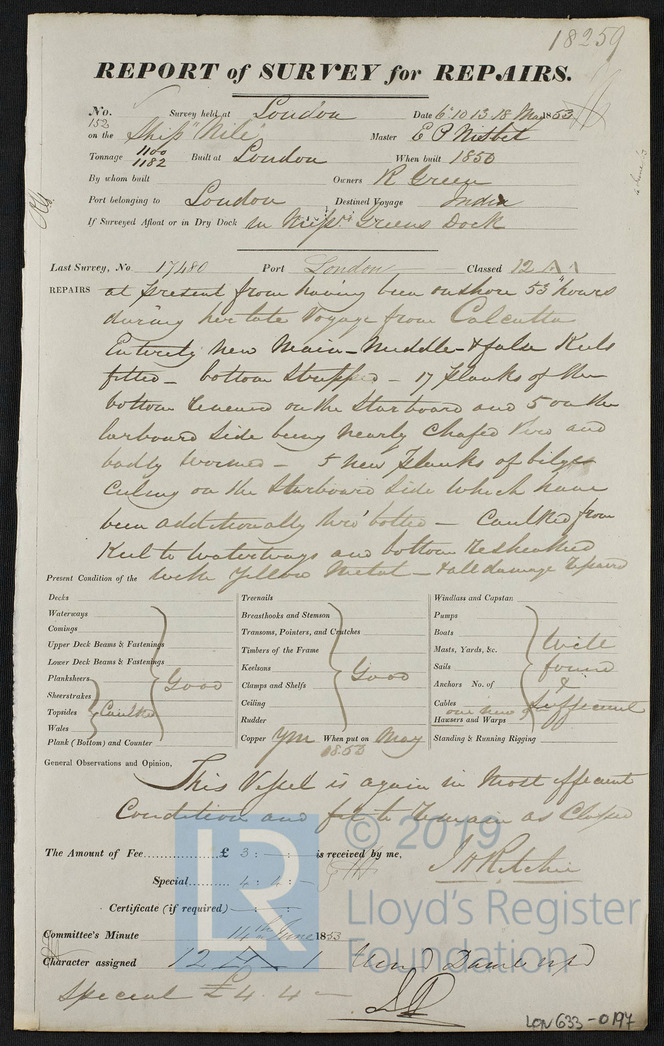 18259
REPORT of SURVEY for REPAIRS.
No. 152 Survey held at London Date 6. 10 13. 18 May 1853
on the Ship "Nile" Master E P Nisbet
Tonnage 1100 1182 Built at London When built 1850
By whom built Owners R Green
Port belonging to London Destined Voyage India
If Surveyed Afloat or in Dry Dock in Greens Dock
Last Survey, No. 17480 Port London Classed 12 A 1
REPAIRS at present from having been onshore 53 hours
during her late Voyage from Calcutta
Entirely new Main - Middle - & false Keels
fitted - bottom stripped - 17 planks of the
bottom renewed on the Starboard and 5 on the
larboard side being nearly chafed thro and
badly wormed - 5 new planks of bilge
ceiling on the Starboard side which have
been additionally thro' bolted - Caulked from
Keel to waterways and bottom resheathed
Present Condition of the with Yellow Metal - & all damage repaired
Decks
Waterways
Comings
Upper Deck Beams & Fastenings
Lower Deck Beams & Fastenings
Planksheers Good
Sheerstrakes
Topsides Caulked
Wales
Plank (Bottom) and Counter
Treenails
Breasthooks and Stemson
Transoms, Pointers, and Crutches
Timbers of the Frame
Keelsons Good
Clamps and Shelfs
Ceiling
Rudder
Copper YM When put on May 1853
Windlass and Capstan
Pumps
Boats Well
Masts, Yards, &c.
Sails found
Anchors No. of &
Cables Sufficient
one new
Hawsers and Warps
Standing & Running Rigging
General Observations and Opinion,
This Vessel is again in most efficient
Condition and fit to remain as Classed
The Amount of Fee £ 3 : - : - is received by me,
Special 4 : 4 : - J H Ritchie
Certificate (if required)
Committee's Minute 14th June 1853
Character assigned 12 A 1
Special £4. 4 -
LON 633-0197
LR
© 2019
Lloyd's Register
Foundation